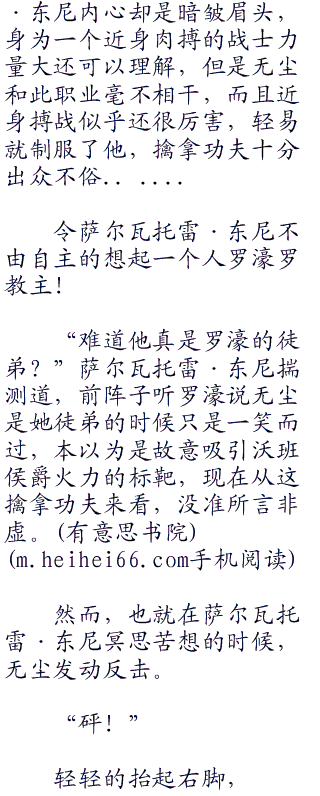 ·东尼内心却是暗皱眉头，
身为一个近身肉搏的战士力
量大还可以理解，但是无尘
和此职业毫不相干，而且近
身搏战似乎还很厉害，轻易
就制服了他，擒拿功夫十分
出众不俗.. ....
令萨尔瓦托雷·东尼不
由自主的想起一个人罗濠罗
教主！
“难道他真是罗濠的徒
弟？”萨尔瓦托雷·东尼揣
测道，前阵子听罗濠说无尘
是她徒弟的时候只是一笑而
过，本以为是故意吸引沃班
侯爵火力的标靶，现在从这
擒拿功夫来看，没准所言非
虚。(有意思书院)
(m.heihei66.com手机阅读)
然而，也就在萨尔瓦托
雷·东尼冥思苦想的时候，
无尘发动反击。
“砰！”
轻轻的抬起右脚，